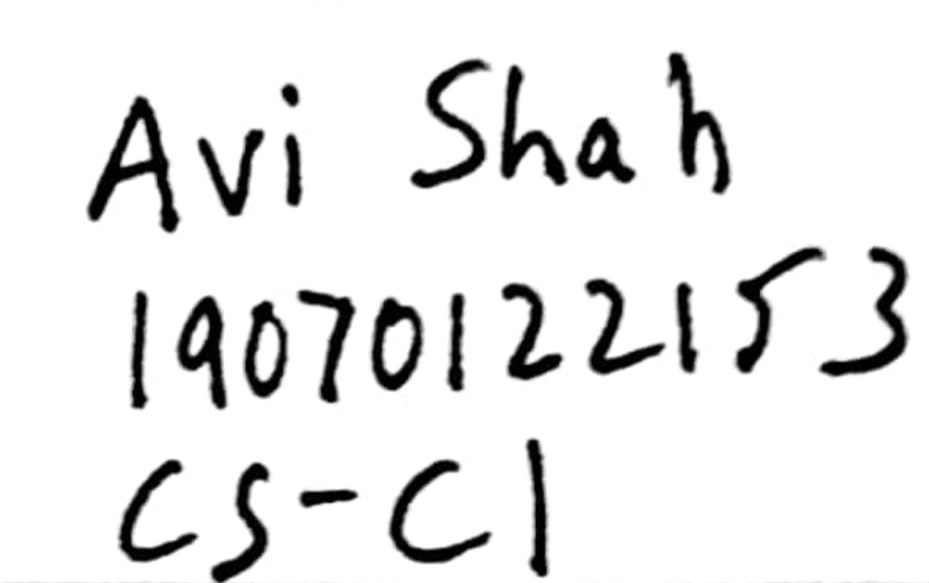 Avi Shah
19070122153
CS-C1